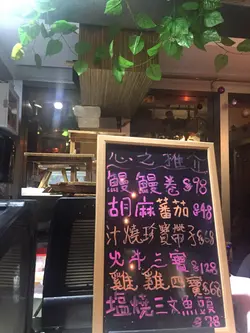 心之推介
鰻鰻卷 $78
胡麻蕃茄 $48
汁燒珍寶帶子 $68
火牛三寶 $128
雞雞四寶 $68
塩燒三文魚頭
$78